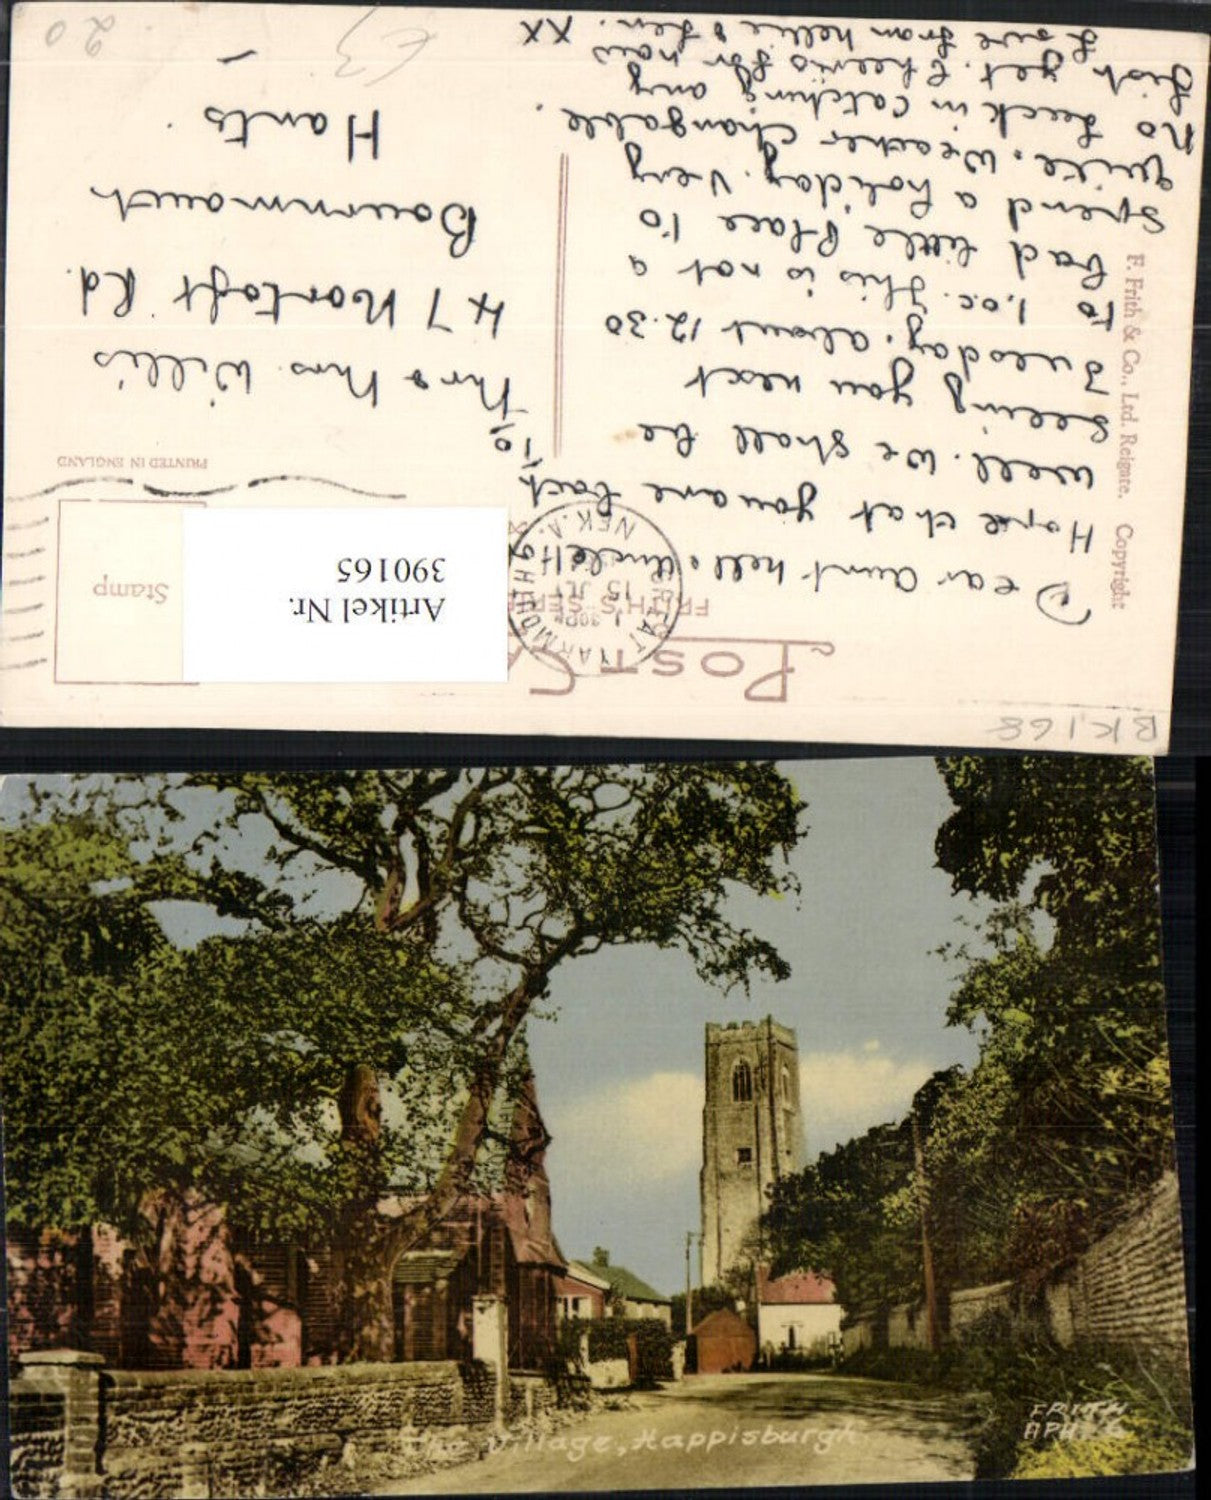 BK168
POST CA
FRITH'S SER
GREAT YARMOUTH
15 JL
NFK.A.
Stamp
Artikel Nr.
390165
PRINTED IN ENGLAND
F. Frith & Co., Ltd. Reigate. Copyright
Dear Aunt hell & Uncle
Hope that you are back
well. We shall be
seeing you next
Tuesday. about 12.30
to 1.oc. This is not a
bad little Place to
Spend a holiday. Very
quite. Weather changable.
No Luck in catching any
fish yet. Cheerio for now
Love from Nellie & Len. XX
Mr & Mrs. Willis
47 Noortoft Rd.
Bournmouth
Hants.
£3
20
The Village, Happisburgh.
FRITH